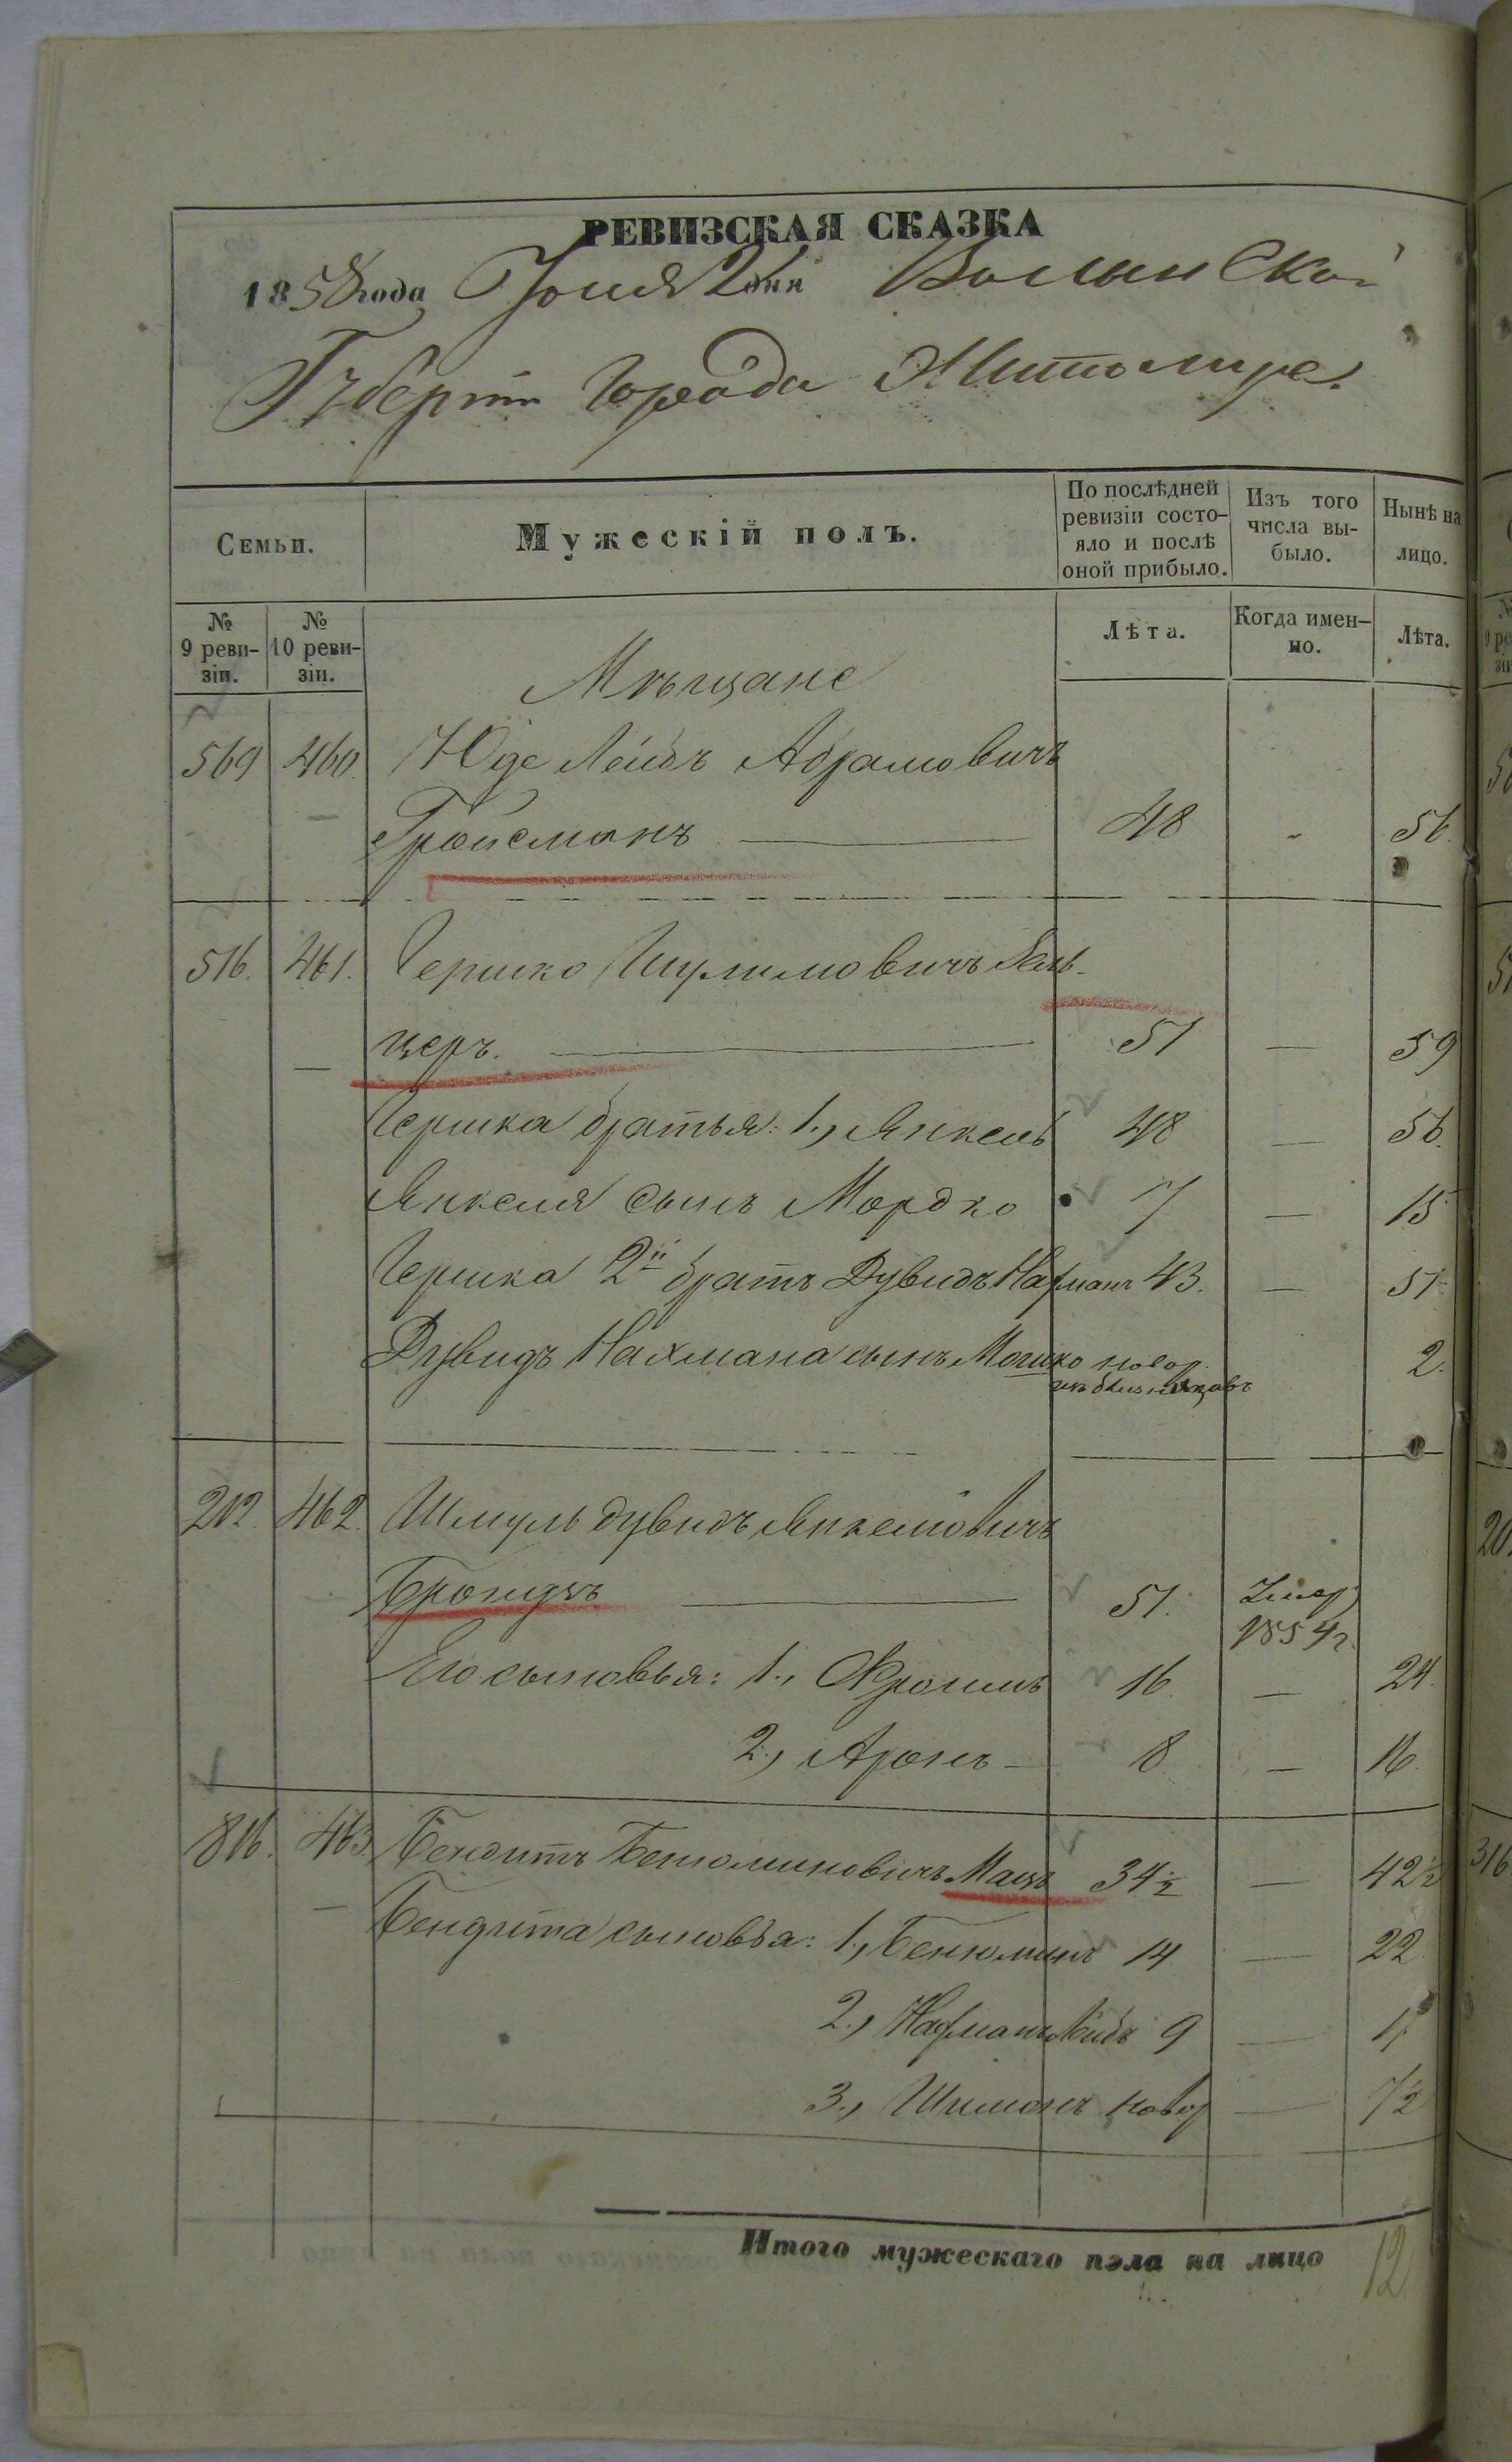 РЕВИЗСКАЯ СКАЗКА
1858 года Іюня 2 дня Волынской
Губерніи Города Житомира.
Семьи.
Мужескій полъ.
По послѣдней ревизіи состояло и послѣ оной прибыло.
Изъ того числа выбыло.
Нынѣ на лицо.
№ 9 ревизіи.
№ 10 ревизіи.
Лѣта.
Когда именно.
Лѣта.
Мѣщане
569 460. Юде Лейбъ Абрамовичъ
Гройсманъ — 48 - 56.
516. 461. Гершко Шулимовичъ Заль-
церъ. — 51 — 59
Гершка братья: 1., Янкель 48 — 56.
Янкеля сынъ Мордко 7 — 15
Гершка 2й братъ Дувидъ Нахманъ 43. — 51.
Дувидъ Нахмана сынъ Мошко новор. 2.
изъ близнецовъ
202. 462. Шмуль Дувидъ Янкелiовичъ
51. Умер. 1854 г.
Его сыновья: 1., Фроимъ 16. — 24.
2., Аронъ — 8. — 16.
816. 463. Бендитъ Бенюминовичъ Мацъ 34½ — 42½
Бендита сыновья: 1., Бенюминъ 14 — 22
2., Нахманъ Лейбъ 9 — 17.
3., Шимонъ новор — 7½
Итого мужескаго пола на лицо 12